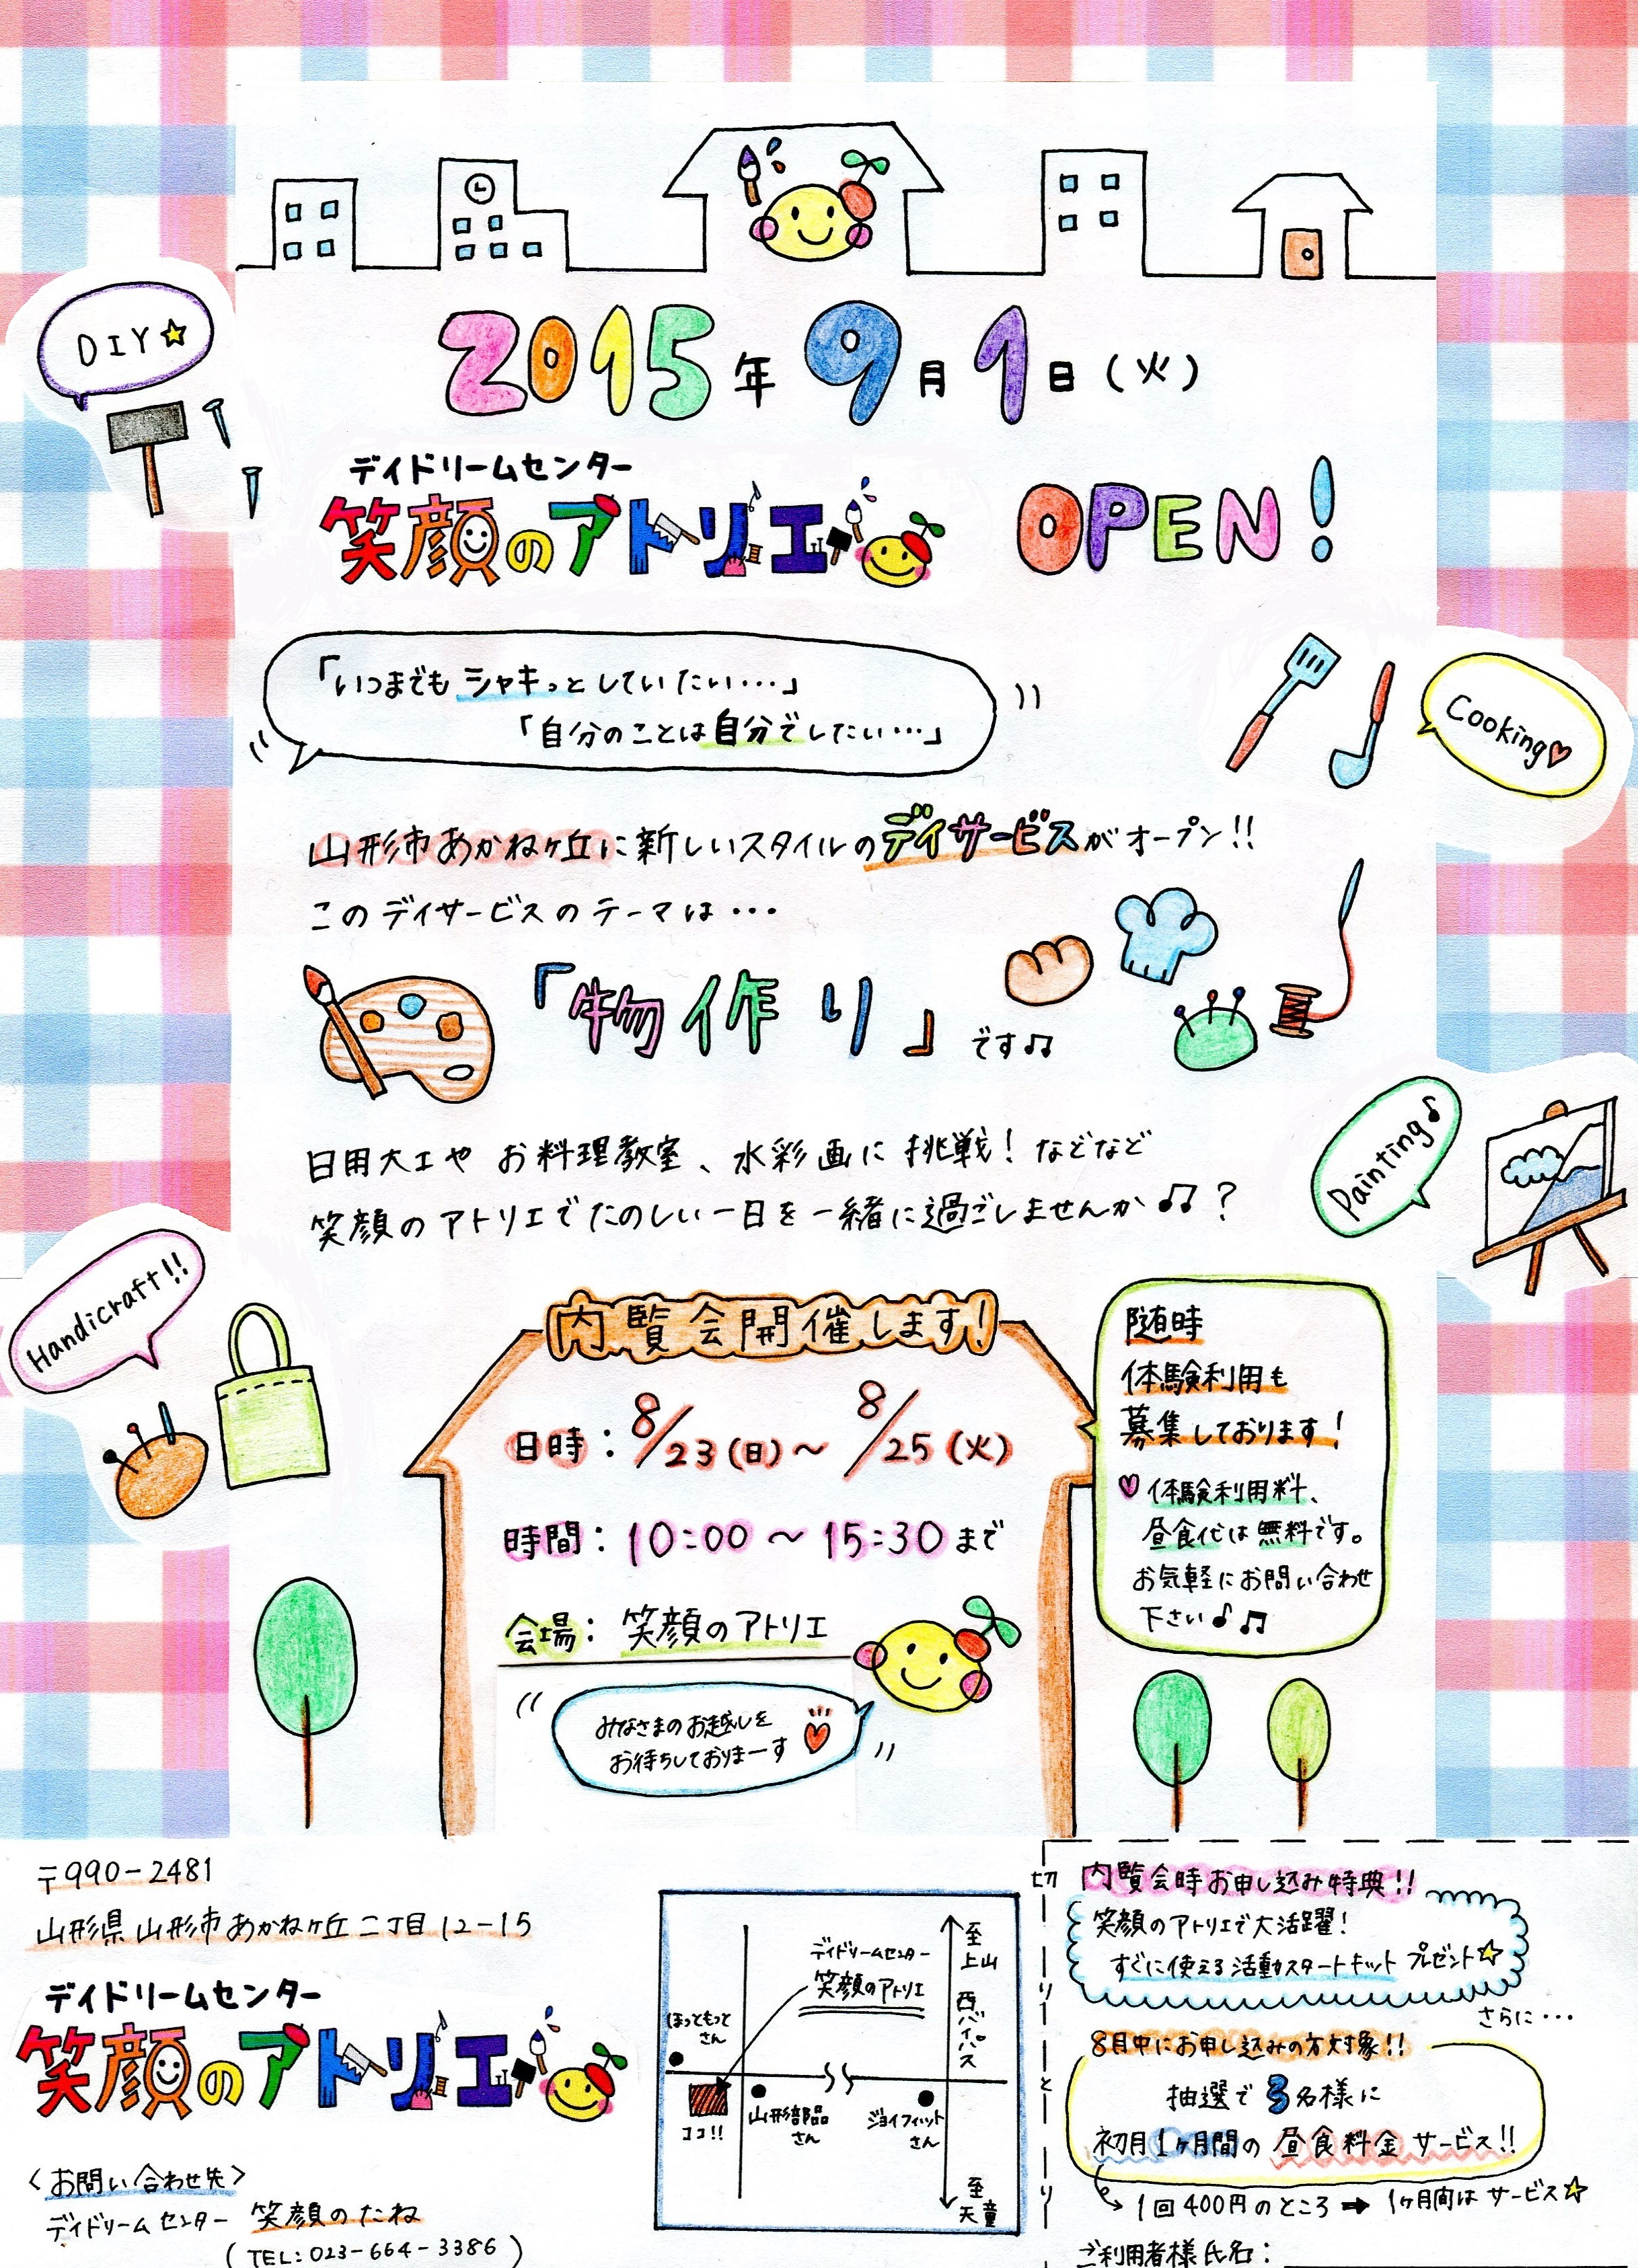 DIY☆
2015年9月1日(火)
デイドリームセンター
笑顔のアトリエ
OPEN!
「いつまでもシャキっとしていたい…」
「自分のことは自分でしたい…」
Cooking♡
山形市あかねヶ丘に新しいスタイルのデイサービスがオープン!!
このデイサービスのテーマは…
「物作り」です♫
Painting♪
日用大工や お料理教室、水彩画に挑戦!などなど
笑顔のアトリエでたのしい一日を一緒に過ごしませんか♫?
Handicraft!!
内覧会開催します!
日時:8/23(日)〜8/25(火)
時間:10:00〜15:30まで
会場:笑顔のアトリエ
みなさまのお越しを
お待ちしておりまーす
随時
体験利用も
募集しております!
♡体験利用料、
昼食代は無料です。
お気軽にお問い合わせ
下さい♪♫
〒990-2481
山形県山形市あかねヶ丘二丁目12-15
デイドリームセンター
笑顔のアトリエ
<お問い合わせ先>
デイドリームセンター 笑顔のたね
(TEL:023-664-3386)
至上山
西バイパス
至天童
デイドリームセンター
笑顔のアトリエ
ほっともっと
さん
ココ!!
山形部品
さん
ジョイフィット
さん
切りとり
内覧会時お申し込み特典!!
笑顔のアトリエで大活躍!
すぐに使える活動スタートキット プレゼント☆
さらに…
8月中にお申し込みの方対象!!
抽選で3名様に
初月1ヶ月間の昼食料金サービス!!
1回400円のところ➡1ヶ月間はサービス☆
ご利用者様氏名: